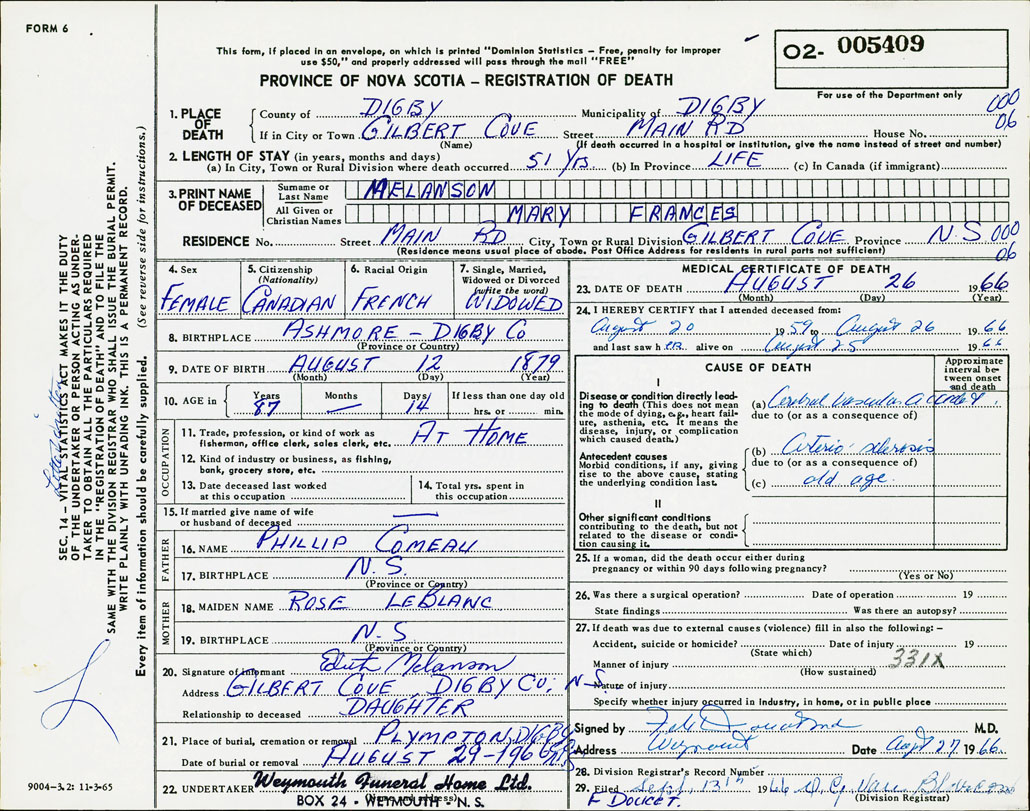 FORM 6
This form, if placed in an envelope, on which is printed "Dominion Statistics – Free, penalty for improper
use $50," and properly addressed will pass through the mail "FREE"
O2- 005409
For use of the Department only
PROVINCE OF NOVA SCOTIA – REGISTRATION OF DEATH
000
06
1. PLACE OF DEATH
County of DIGBY Municipality of DIGBY
If in City or Town GILBERT COVE Street MAIN RD House No.
(Name) (If death occurred in a hospital or institution, give the name instead of street and number)
2. LENGTH OF STAY (in years, months and days)
(a) In City, Town or Rural Division where death occurred 51 YRS. (b) In Province LIFE (c) In Canada (if immigrant)
3. PRINT NAME OF DECEASED
Surname or Last Name MELANSON
All Given or Christian Names MARY FRANCES
RESIDENCE No. Street MAIN RD City, Town or Rural Division GILBERT COVE Province N.S 000
(Residence means usual place of abode. Post Office Address for residents in rural parts not sufficient) 06
4. Sex FEMALE
5. Citizenship (Nationality) CANADIAN
6. Racial Origin FRENCH
7. Single, Married, Widowed or Divorced (write the word) WIDOWED
8. BIRTHPLACE ASHMORE – DIGBY CO
(Province or Country)
9. DATE OF BIRTH AUGUST 12 1879
(Month) (Day) (Year)
10. AGE in Years 87 Months — Days 14 If less than one day old hrs. or min.
OCCUPATION
11. Trade, profession, or kind of work as
fishermen, office clerk, sales clerk, etc. AT HOME
12. Kind of industry or business, as fishing,
bank, grocery store, etc.
13. Date deceased last worked
at this occupation
14. Total yrs. spent in
this occupation
15. If married give name of wife
or husband of deceased —
FATHER
16. NAME PHILLIP COMEAU
17. BIRTHPLACE N.S.
(Province or Country)
MOTHER
18. MAIDEN NAME ROSE LEBLANC
19. BIRTHPLACE N.S
(Province or Country)
20. Signature of informant Edith Melanson
Address GILBERT COVE DIGBY CO; N-S.
Relationship to deceased DAUGHTER
21. Place of burial, cremation or removal PLYMPTON, DIGBY
Date of burial or removal AUGUST 29-1966
22. UNDERTAKER Weymouth Funeral Home Ltd.
BOX 24 - WEYMOUTH - N.S.
MEDICAL CERTIFICATE OF DEATH
23. DATE OF DEATH AUGUST 26 1966
(Month) (Day) (Year)
24. I HEREBY CERTIFY that I attended deceased from:
August 20 1959 to August 26 1966
and last saw her alive on August 25 1966
CAUSE OF DEATH
Approximate interval between onset and death
I
Disease or condition directly leading to death (This does not mean the mode of dying, e.g., heart failure, asthenia, etc. It means the disease, injury, or complication which caused death.)
(a) Cerebral vascular accident
due to (or as a consequence of)
Antecedent causes
Morbid conditions, if any, giving rise to the above cause, stating the underlying condition last.
(b) Arterio sclerosis
due to (or as a consequence of)
(c) old age
II
Other significant conditions
contributing to the death, but not related to the disease or condition causing it.
25. If a woman, did the death occur either during
pregnancy or within 90 days following pregnancy?
(Yes or No)
26. Was there a surgical operation? Date of operation 19
State findings Was there an autopsy?
27. If death was due to external causes (violence) fill in also the following: –
Accident, suicide or homicide? Date of injury 19
(State which)
331X
Manner of injury
(How sustained)
Nature of injury
Specify whether injury occurred in industry, in home, or in public place
Signed by M.D.
Address Weymouth Date Augt 27, 1966.
28. Division Registrar's Record Number
29. Filed Sept. 13th 1966
(Division Registrar)
F DOUCET.
SEC. 14 – VITAL STATISTICS ACT MAKES IT THE DUTY
OF THE UNDERTAKER OR PERSON ACTING AS UNDER-
TAKER TO OBTAIN ALL THE PARTICULARS REQUIRED
IN THE "REGISTRATION OF DEATH" AND TO FILE THE
SAME WITH THE DIVISION REGISTRAR WHO SHALL ISSUE THE BURIAL PERMIT.
WRITE PLAINLY WITH UNFADING INK. THIS IS A PERMANENT RECORD.
Every item of information should be carefully supplied. (See reverse side for instructions.)
9004-3.2: 11-3-65